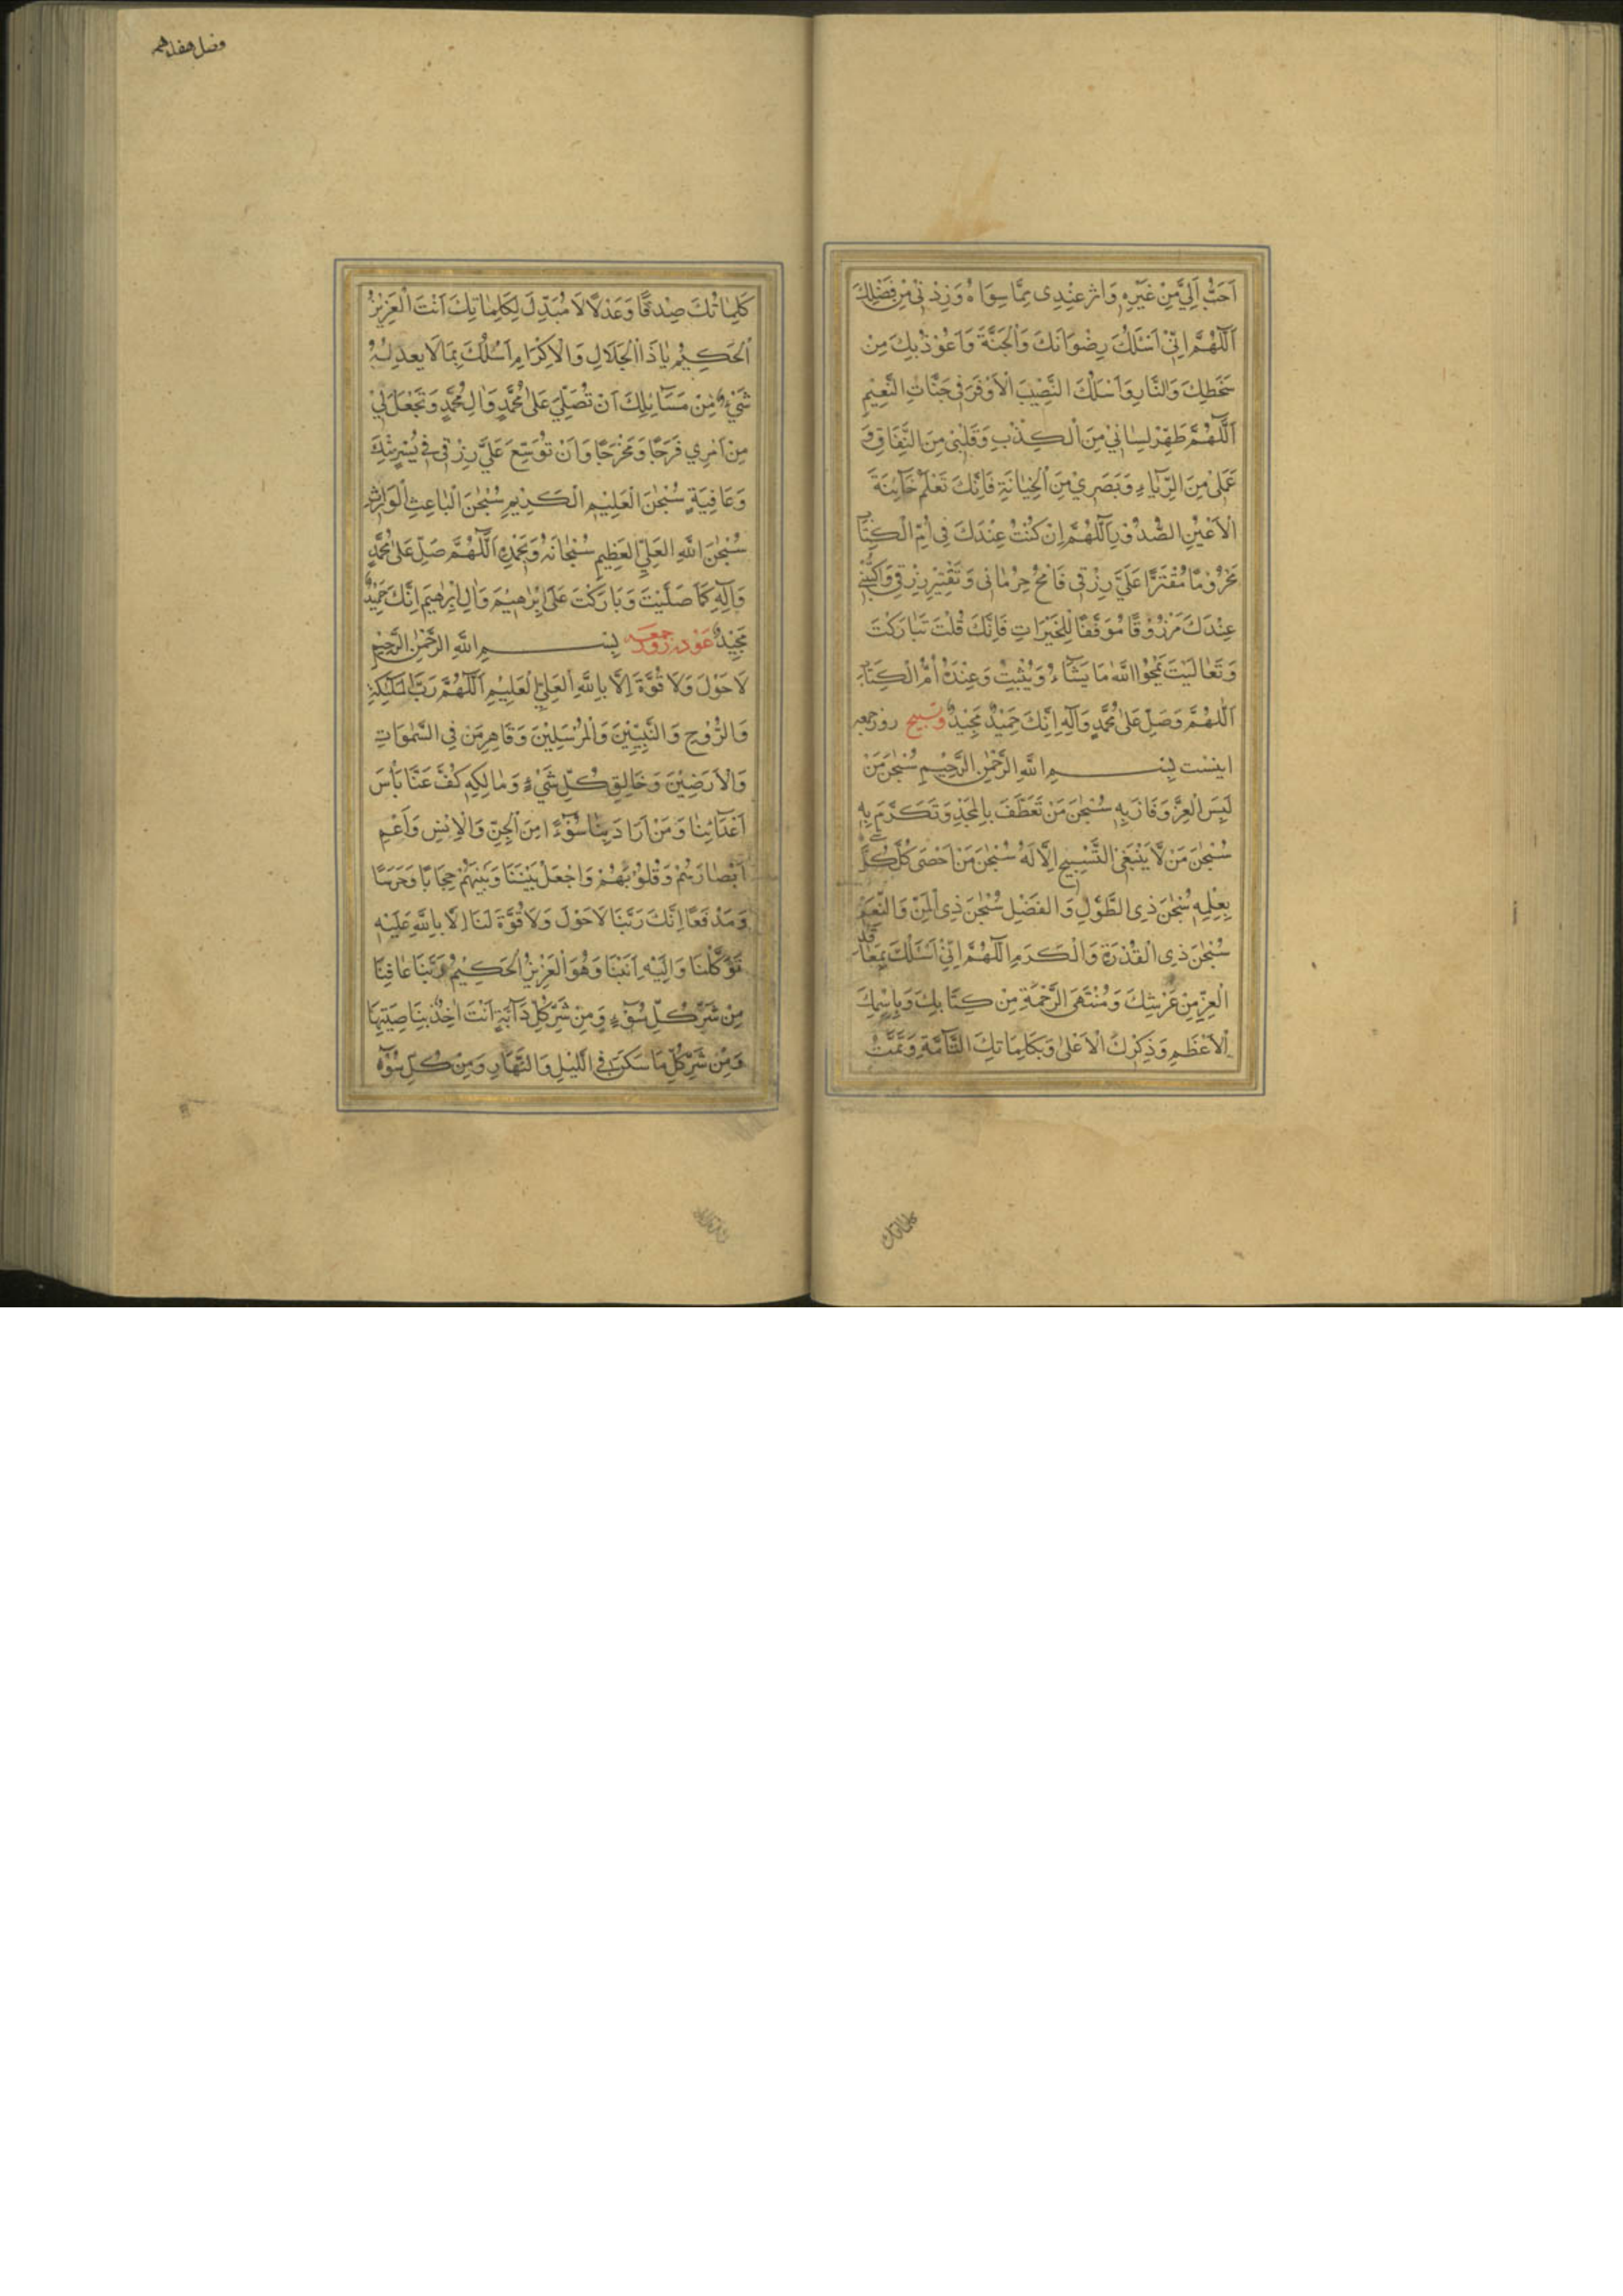 اَحَبُّ اِلَيَّ مِنْ غَيْرِهِ وَاٰثَرَ عِنْدِى مِمَّا سِوَاهُ وَزِدْنِى مِنْ فَضْلِكَ
اَللّٰهُمَّ اِنِّى اَسْئَلُكَ رِضْوَانَكَ وَالْجَنَّةَ وَاَعُوْذُ بِكَ مِنْ
سَخَطِكَ وَالنَّارِ وَاَسْئَلُكَ النَّصِيْبَ الْاَوْفَرَ فِى جَنَّاتِ النَّعِيْمِ
اَللّٰهُمَّ طَهِّرْ لِسَانِيْ مِنَ الْكِذْبِ وَقَلْبِىْ مِنَ النِّفَاقِ وَ
عَمَلِىْ مِنَ الرِّيَاءِ وَبَصَرِيْ مِنَ الْخِيَانَةِ فَاِنَّكَ تَعْلَمُ خَآئِنَةَ
الْاَعْيُنِ الصُّدُوْرِ اَللّٰهُمَّ اِنْ كُنْتُ عِنْدَكَ فِى اُمِّ الْكِتَابِ
مَحْرُوْمًا مُقْتَرًا عَلَيَّ رِزْقِى فَامْحُ حِرْمَانِى وَتَقْتِيْرِ رِزْقِى وَاكْتُبْنِىْ
عِنْدَكَ مَرْزُوْقًا مُوَفَّقًا لِلْخَيْرَاتِ فَاِنَّكَ قُلْتَ تَبَارَكْتَ
وَتَعَالَيْتَ يَمْحُوا اللّٰهُ مَا يَشَآءُ وَيُثْبِتُ وَعِنْدَهُ اُمُّ الْكِتَابِ
اَللّٰهُمَّ وَصَلِّ عَلٰى مُحَمَّدٍ وَاٰلِهِ اِنَّكَ حَمِيْدٌ مَجِيْدٌ وتسبيح روز جمعه
اينست بِسْمِ اللّٰهِ الرَّحْمٰنِ الرَّحِيْمِ سُبْحٰنَ مَنْ
لَبِسَ الْعِزَّ وَفَازَ بِهِ سُبْحٰنَ مَنْ تَعَطَّفَ بِالْمَجْدِ وَتَكَرَّمَ بِهِ
سُبْحٰنَ مَنْ لَا يَنْبَغِى التَّسْبِيْحُ اِلَّا لَهُ سُبْحٰنَ مَنْ اَحْصٰى كُلَّ شَىْءٍ
بِعِلْمِهِ سُبْحٰنَ ذِى الطَّوْلِ وَالْفَضْلِ سُبْحٰنَ ذِى الْمَنِّ وَالنِّعَمِ
سُبْحٰنَ ذِى الْقُدْرَةِ وَالْكَرَمِ اَللّٰهُمَّ اِنِّىْ اَسْئَلُكَ بِمَعَاقِدِ
الْعِزِّ مِنْ عَرْشِكَ وَمُنْتَهَى الرَّحْمَةِ مِنْ كِتَابِكَ وَبِاِسْمِكَ
الْاَعْظَمِ وَذِكْرِكَ الْاَعْلٰى وَبِكَلِمَاتِكَ التَّآمَّةِ وَتَمَّتْ
كلماتك
فصل هفدهم
كَلِمَاتُكَ صِدْقًا وَعَدْلًا لَا مُبَدِّلَ لِكَلِمَاتِكَ اَنْتَ الْعَزِيْزُ
الْحَكِيْمُ يَا ذَا الْجَلَالِ وَالْاِكْرَامِ اَسْئَلُكَ بِمَا لَا يَعْدِلُهُ
شَىْءٌ مِنْ مَسَآئِلِكَ اَنْ تُصَلِّيَ عَلٰى مُحَمَّدٍ وَاٰلِ مُحَمَّدٍ وَتَجْعَلَ لِيْ
مِنْ اَمْرِي فَرَجًا وَمَخْرَجًا وَاَنْ تُوَسِّعَ عَلَيَّ رِزْقِى فِى يُسْرٍ مِنْكَ
وَعَافِيَةٍ سُبْحٰنَ الْعَلِيْمِ الْكَرِيْمِ سُبْحٰنَ الْبَاعِثِ الْوَارِثِ
سُبْحٰنَ اللّٰهِ الْعَلِيِّ الْعَظِيْمِ سُبْحَانَهُ وَبِحَمْدِهِ اَللّٰهُمَّ صَلِّ عَلٰى مُحَمَّدٍ
وَاٰلِهِ كَمَا صَلَّيْتَ وَبَارَكْتَ عَلٰى اِبْرٰهِيْمَ وَاٰلِ اِبْرٰهِيْمَ اِنَّكَ حَمِيْدٌ
مَجِيْدٌ عوذه روز جمعه بِسْمِ اللّٰهِ الرَّحْمٰنِ الرَّحِيْمِ
لَا حَوْلَ وَلَا قُوَّةَ اِلَّا بِاللّٰهِ الْعَلِيِّ الْعَلِيْمِ اَللّٰهُمَّ رَبَّ الْمَلٰٓئِكَةِ
وَالرُّوْحِ وَالنَّبِيِّيْنَ وَالْمُرْسَلِيْنَ وَقَاهِرَ مَنْ فِى السَّمٰوَاتِ
وَالْاَرَضِيْنَ وَخَالِقِ كُلِّ شَىْءٍ وَمَالِكِهِ كُفَّ عَنَّا بَأْسَ
اَعْدَآئِنَا وَمَنْ اَرَادَ بِنَا سُوْءًا مِنَ الْجِنِّ وَالْاِنْسِ وَاَعْمِ
اَبْصَارَهُمْ وَقُلُوْبَهُمْ وَاجْعَلْ بَيْنَنَا وَبَيْنَهُمْ حِجَابًا وَحَرَسًا
وَمَدْفَعًا اِنَّكَ رَبَّنَا لَا حَوْلَ وَلَا قُوَّةَ لَنَا اِلَّا بِاللّٰهِ عَلَيْهِ
تَوَكَّلْنَا وَاِلَيْهِ اَنَبْنَا وَهُوَ الْعَزِيْزُ الْحَكِيْمُ رَبَّنَا عَافِنَا
مِنْ شَرِّ كُلِّ سُوْٓءٍ وَمِنْ شَرِّ كُلِّ دَآبَّةٍ اَنْتَ اٰخِذٌ بِنَاصِيَتِهَا
وَمِنْ شَرِّ كُلِّ مَا سَكَنَ فِى اللَّيْلِ وَالنَّهَارِ وَمِنْ كُلِّ سُوْٓءٍ